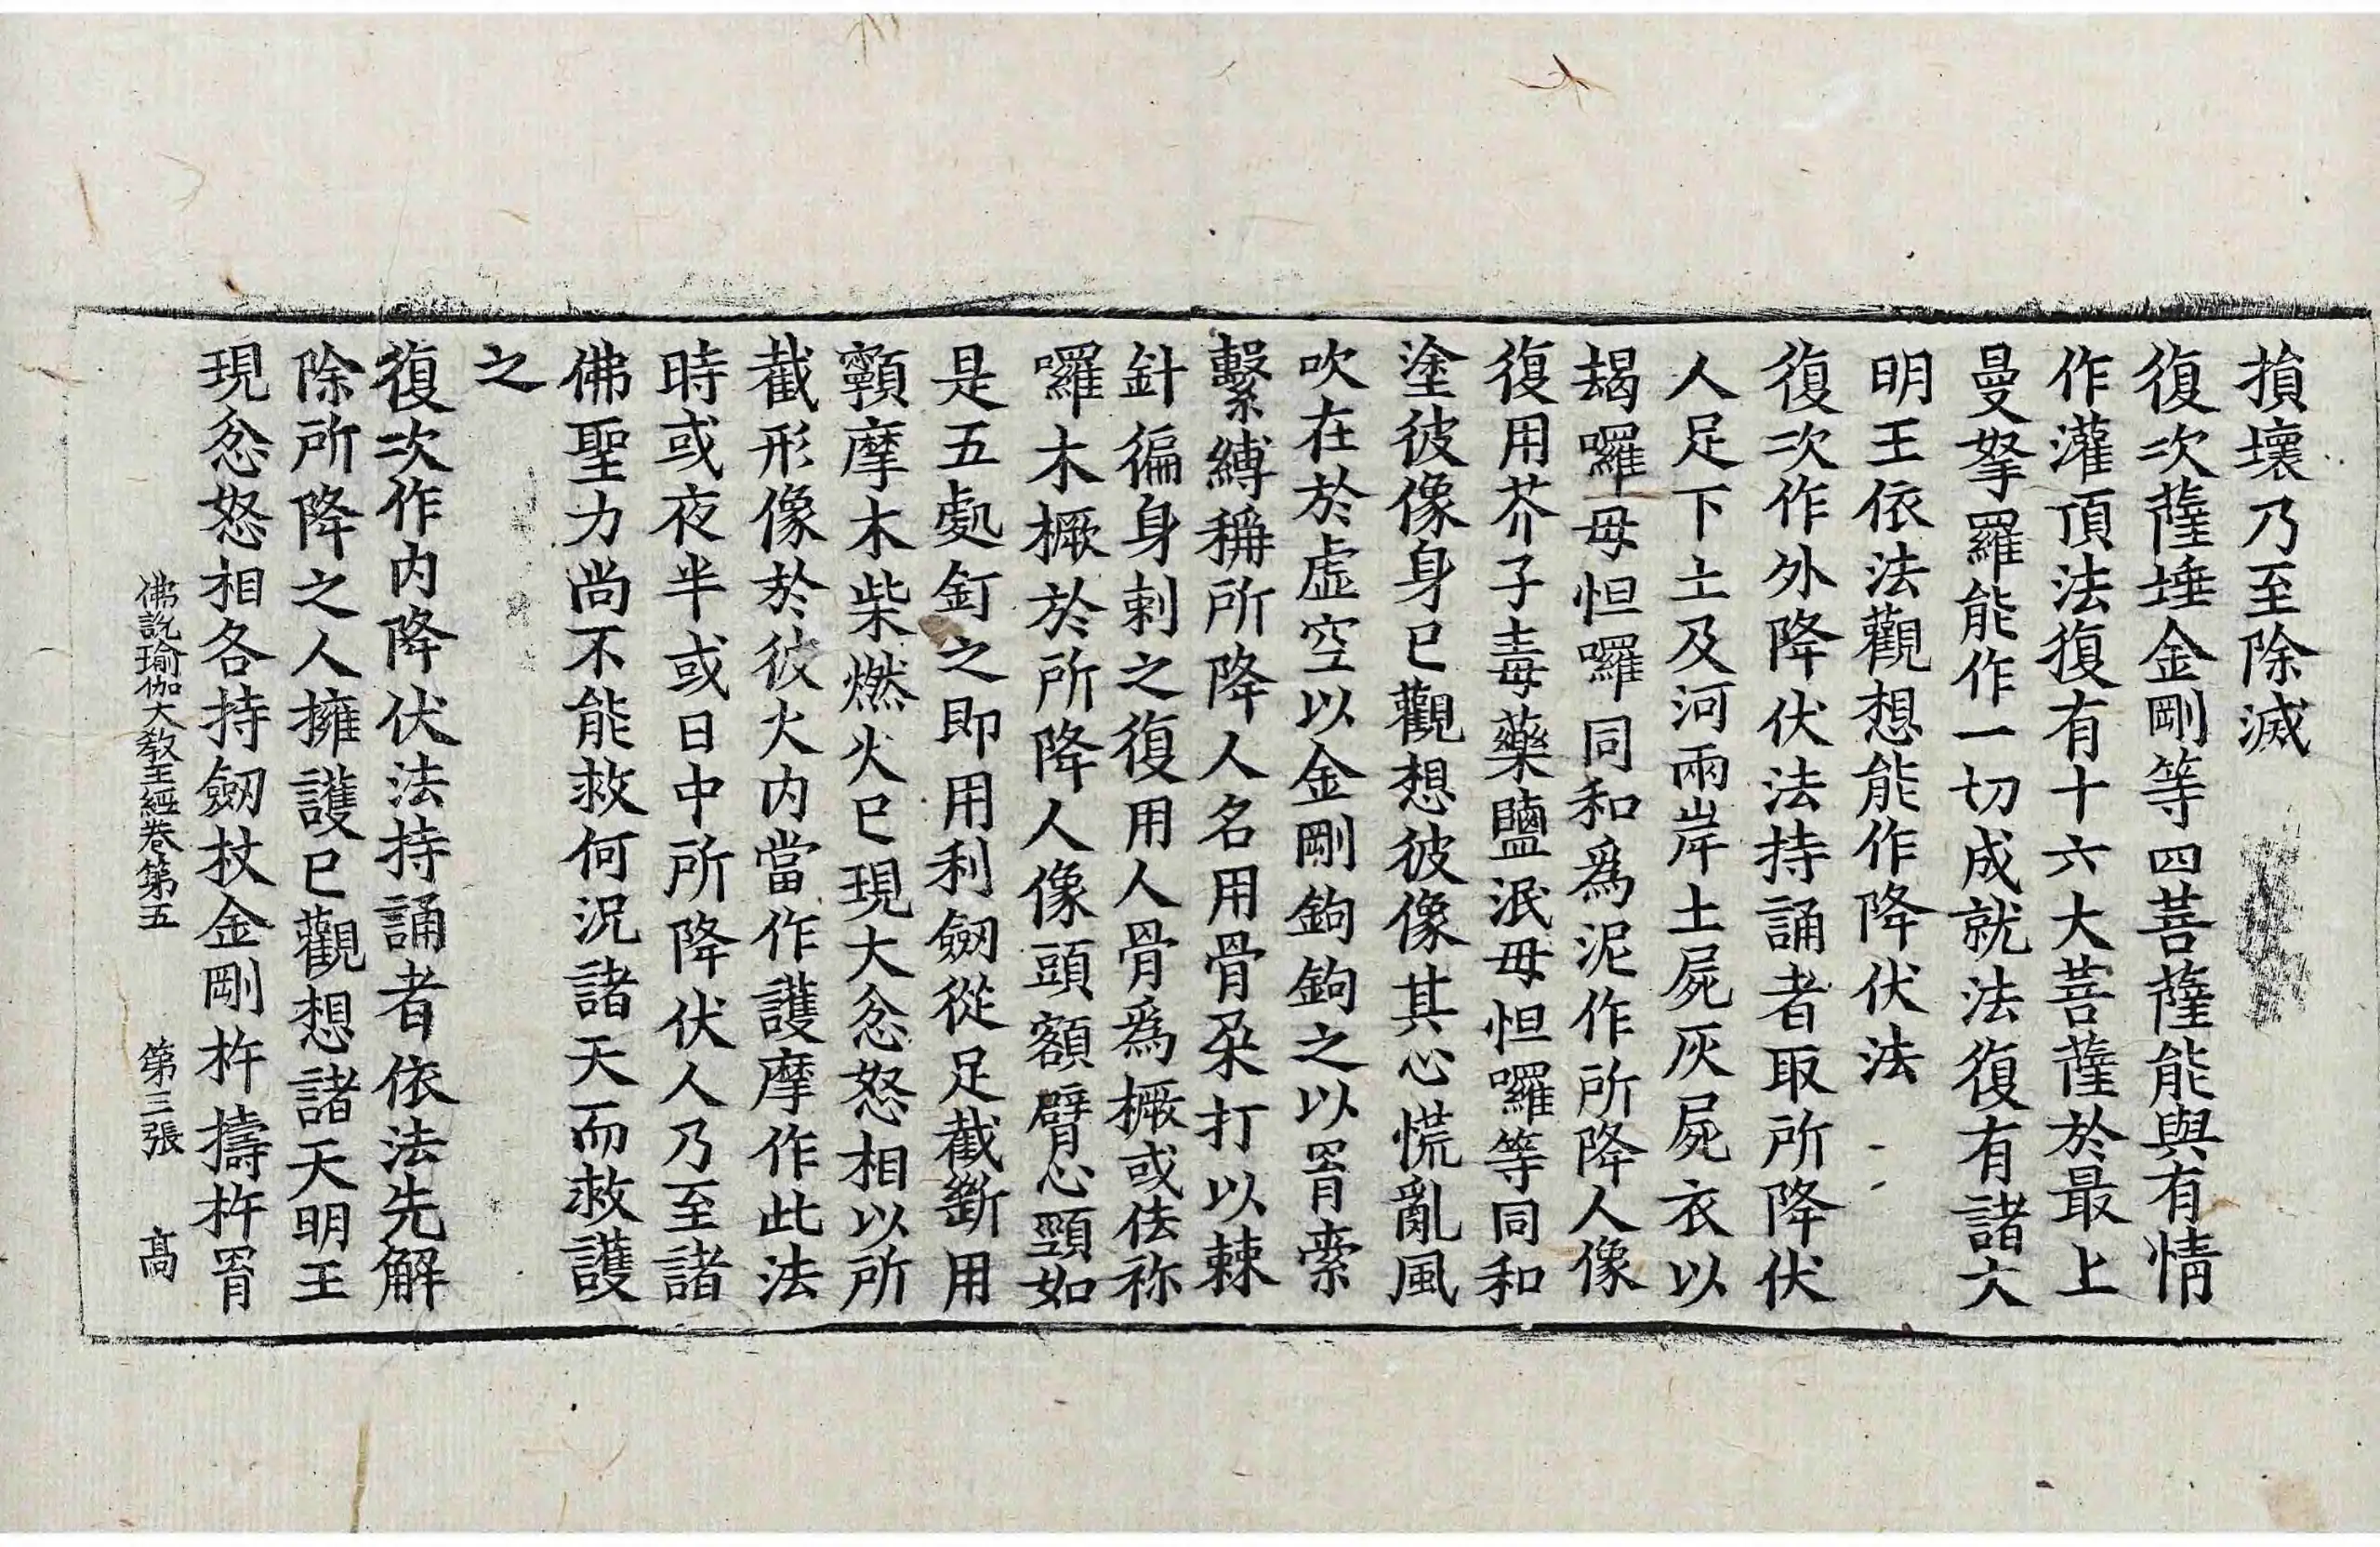 損壞乃至除滅
復次薩埵金剛等四菩薩能與有情
作灌頂法復有十六大菩薩於最上
曼拏羅能作一切成就法復有諸大
明王依法觀想能作降伏法
復次作外降伏法持誦者取所降伏
人足下土及河兩岸土屍灰屍衣以
朅囉毋怛囉同和爲泥作所降人像
復用芥子毒藥鹽泯毋怛囉等同和
塗彼像身已觀想彼像其心慌亂風
吹在於虛空以金剛鉤鉤之以罥索
繫縛稱所降人名用骨朶打以棘
針徧身刺之復用人骨爲橛或佉祢
囉木橛於所降人像頭額臂心頸如
是五處釘之即用利劒從足截斷用
顟摩木柴燃火已現大忿怒相以所
截形像於彼火内當作護摩作此法
時或夜半或日中所降伏人乃至諸
佛聖力尚不能救何況諸天而救護
之
復次作内降伏法持誦者依法先解
除所降之人擁護已觀想諸天明王
現忿怒相各持劒杖金剛杵擣杵罥
佛說瑜伽大教王經卷第五 第三張 高